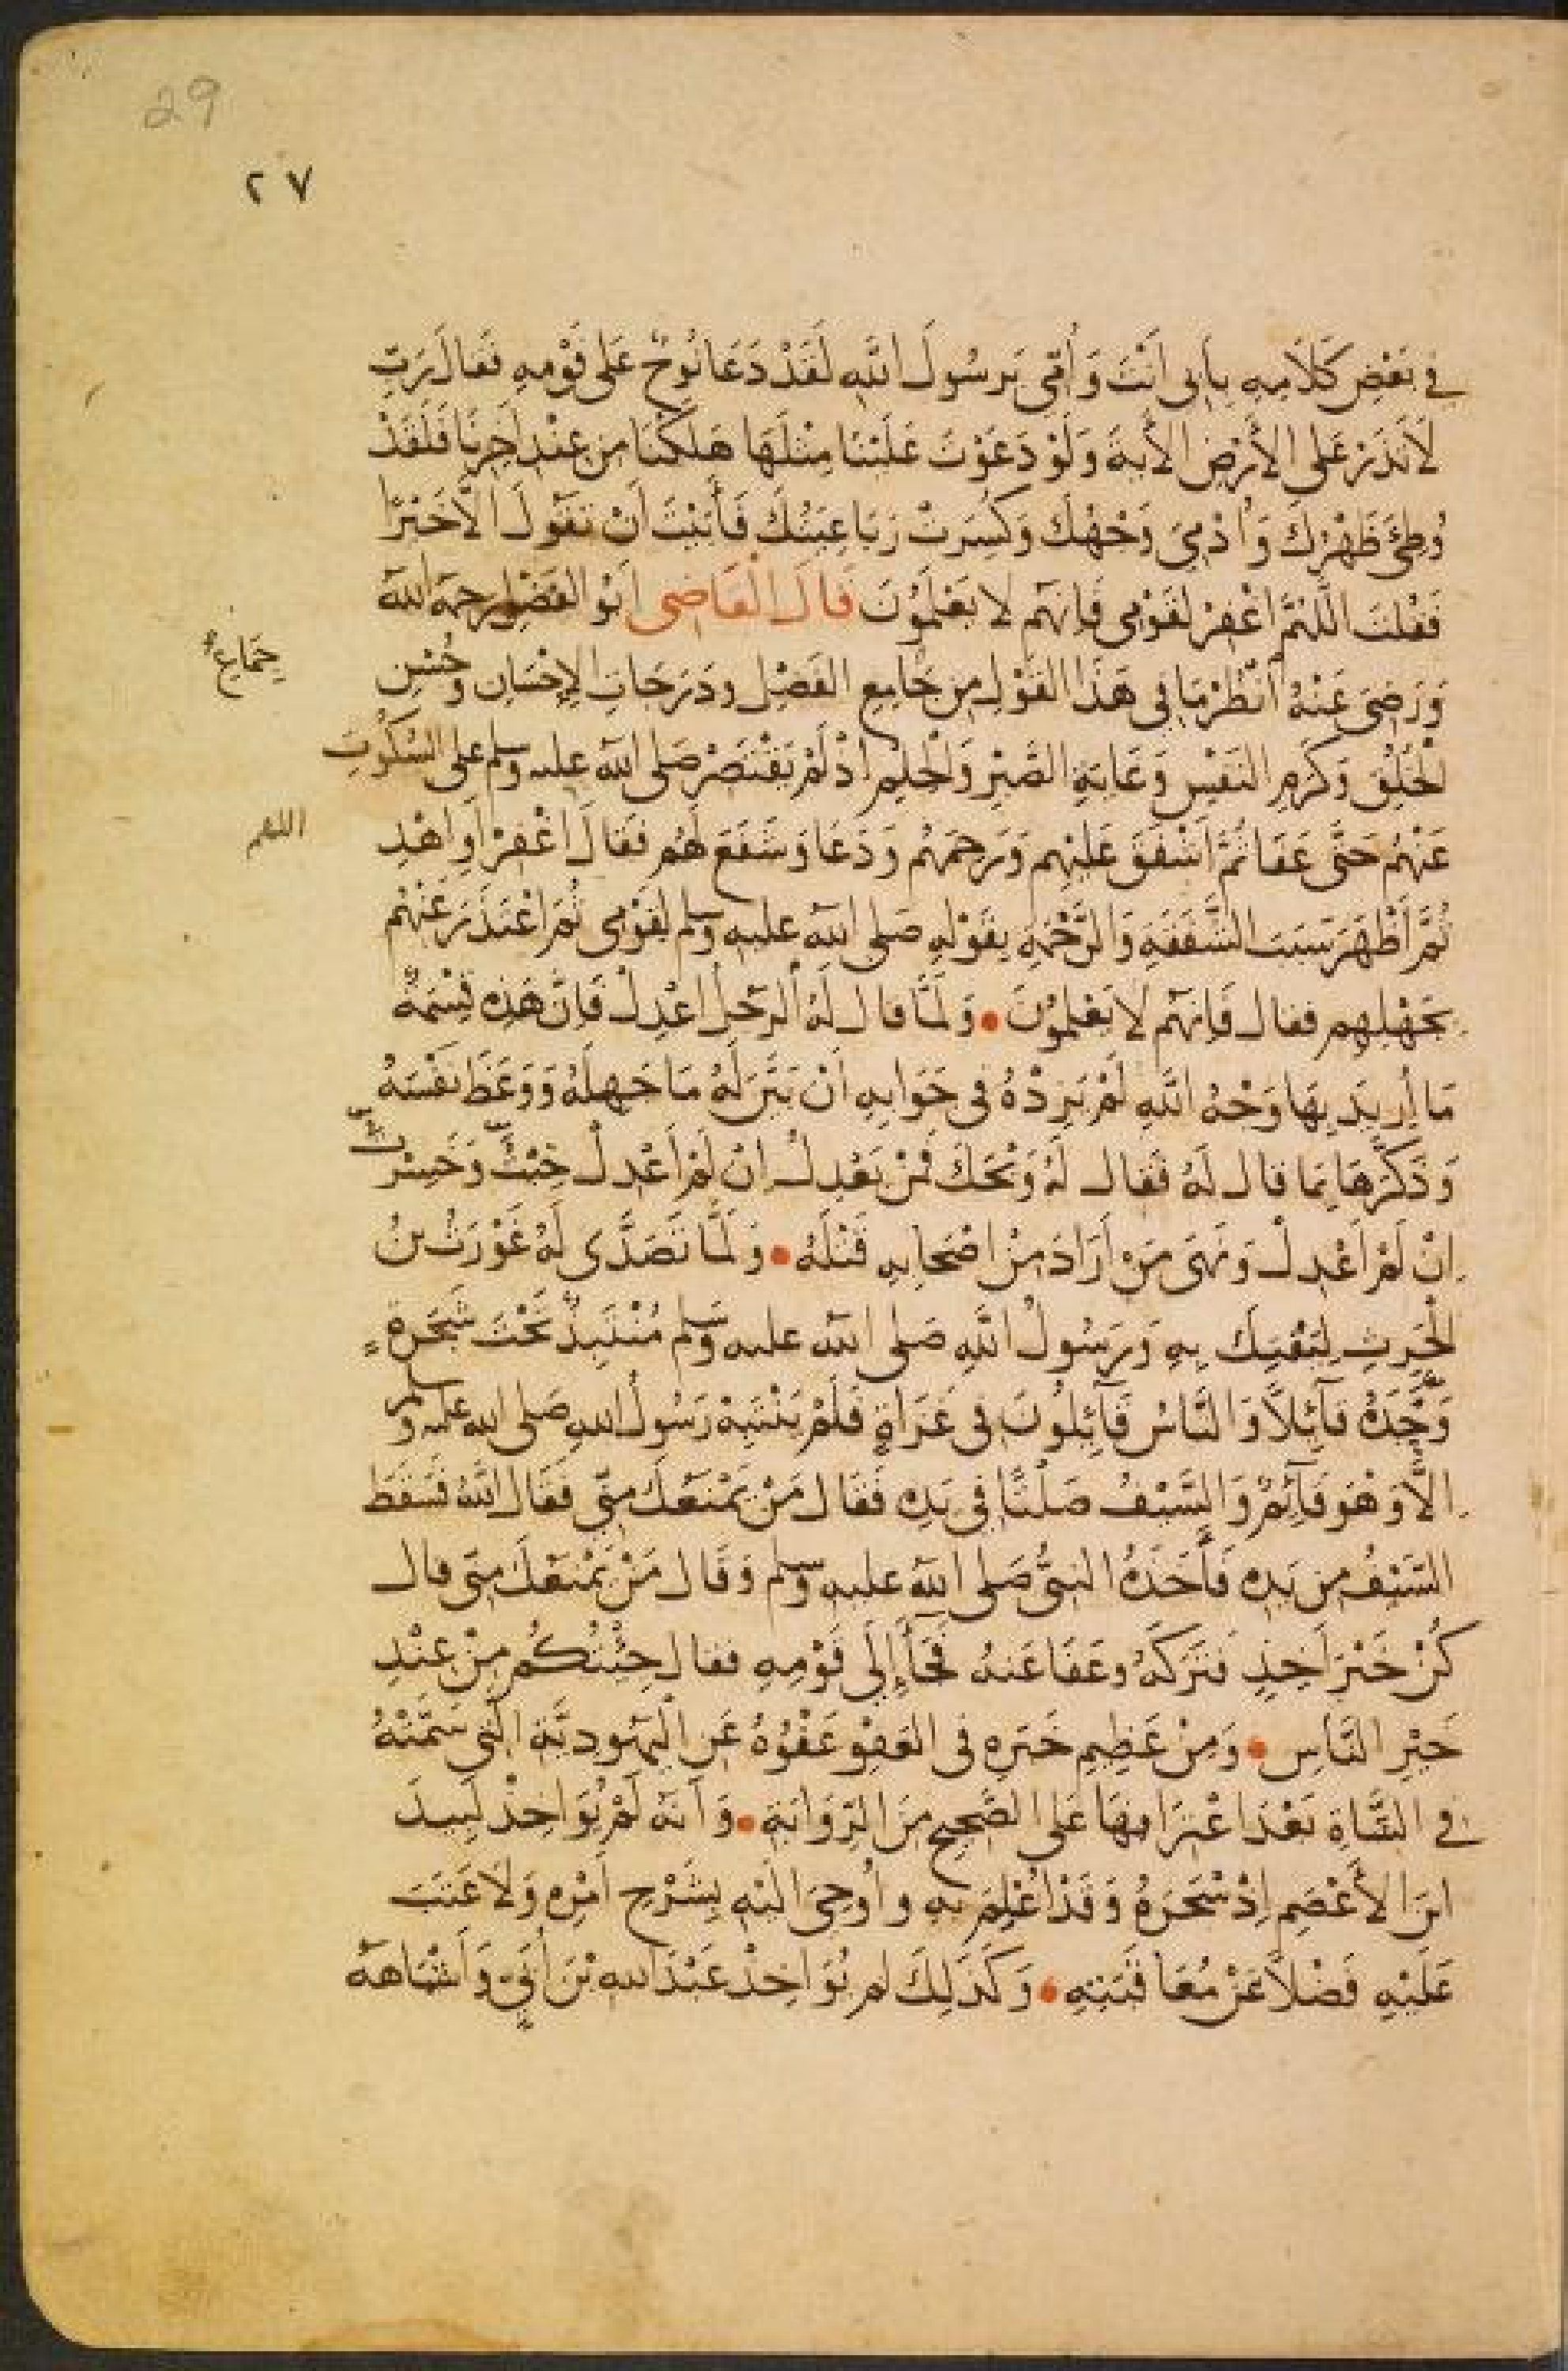 29
٢٧
في بَعْضِ كَلَامِهِ بِأَبِي أَنْتَ وَأُمِّي يَرَسُولَ اللَّهِ لَقَدْ دَعَا نُوحٌ عَلَى قَوْمِهِ فَقَالَ رَبِّ
لَا تَذَرْ عَلَى الأَرْضِ الأَيةَ وَلَوْ دَعَوْتَ عَلَيْنَا مِثْلَهَا هَلَكْنَا مِن عِنْدِ اَخِرِنَا فَلَقَدْ
وُطِئَ ظَهْرُكَ وَأُدْمِيَ وَجْهُكَ وَكُسِرَتْ رَبَاعِيَتُكَ فَأَبَيْتَ اَنْ تَقُولَ اِلَّا خَيْرًا
فَقُلْتَ اللَّهُمَّ اغْفِرْ لِقَوْمِي فَاِنَّهُم لَا يَعْلَمُوْنَ قَالَ الْقَاضِي اَبُو الفَضْلِ رحمَه اللّٰه
وَرَضِىَ عَنْهُ اُنْظُرْ مَا فِي هَذَا القَوْلِ مِن جَامِعِ الفَضْلِ ودَرَجَاتِ الإِحْسَانِ وحُسْنِ
جِمَاعِ
الْخُلُقِ وَكَرَمِ النَفْسِ وَغَايَةِ الصَّبْرِ وَالْحِلْمِ اذْ لَمْ يَقْتَصِرْ صَلى اللّٰه عليه وسلم على السُكُوتِ
عَنْهُم حَتَّى عَفَا ثُمَّ اَشْفَقَ عَلَيْهِم وَرَحِمَهُم وَدَعَا وَشَفَعَ لَهُم فَقَالَ اغْفِرْ اَوِ اهْدِ
اللهم
ثُمَّ أَظْهَرَ سَبَبَ الشَّفَقَةِ وَالرَّحْمَةِ بِقَوْلِهِ صَلى اللّٰه عليه وسلم لِقَوْمِي ثُمَ اعْتَذَرَ عَنْهُم
بِجَهْلِهِم فقال فَاِنَهُم لَا يَعْلَمُوْنَ • وَلَمَّا قال لَهُ الرَجُلُ اعْدِلْ فَاِنَّ هَذِهِ قِسْمَةٌ
مَا أُرِيدَ بِهَا وَجْهُ اللَّهِ لَمْ يَزِدْهُ فِي جَوَابِهِ اَنْ بَيَّنَ لَهُ مَا جَهِلَهُ وَوَعَظَ نَفْسَهُ
وَذَكَّرَهَا بِمَا قال لَهُ فَقال لَهُ وَيْحَكَ فَمَنْ يَعْدِلُ اِنْ لَمْ اَعْدِلْ خِبْتُ وَخَسِرْتُ
اِنْ لَمْ اَعْدِلْ وَنَهَى مَنْ اَرَادَ مِنْ اصْحَابِهِ قَتْلَهُ • وَلَمَّا تَصَدَّى لَهُ غَوْرَثُ بنُ
الْحَرِثِ لِيَفْتِكَ بِهِ وَرَسُولُ اللَّهِ صَلى اللّٰه عليه وسلم مُنْتَبِذٌ تَحْتَ شَجَرَةٍ
وَحْدَهُ قَآئِلًا وَالنَّاسُ قَآئِلُونَ فِي غَزَاةٍ فَلَمْ يَنْتَبِهْ رَسُولُ اللهِ صَلى الله عليه وسلم
اِلَّا وَهْوَ قَآئِمٌ وَالسَّيْفُ صَلْتًا فِي يَدِهِ فَقَال مَنْ يَمْنَعُكَ مِنّى فَقَالَ اللَّهُ فَسَقَطَ
السَيْفُ مِن يَدِهِ فَأَخَذَهُ النبىُّ صَلى اللّٰه عليه وسلم وَقَال مَنْ يَمْنَعُكَ مِنّى قال
كُنْ خَيْرَ اَخِذٍ فَتَرَكَهُ وعَفَا عَنهُ فَجَآءَ إِلَى قَوْمِهِ فقال جِئْتُكُم مِنْ عِنْدِ
خَيْرِ النَّاسِ • وَمِنْ عَظِيمِ خَبَرِهِ فى العَفْوِ عَفْوُهُ عَن الْيَهُودِيَّةِ الَّتِي سَمَّتْهُ
فِي الشَّاةِ بَعْدَ اعْتِرَافِهَا عَلَى الصَّحِيحِ مِنَ الرِّوَايَةِ • وَاَنَّه لَمْ يُوَاخِذْ لَبِيدَ
ابنَ الأَعْصَمِ اِذْ سَحَرَهُ وَقَدْ اُعْلِمَ بهِ واُوحِىَ الَيْهِ بِشَرْحِ اَمْرِهِ وَلَا عَتَبَ
عَلَيْهِ فَضْلًا عَنْ مُعَاقَبَتِهِ • وَكَذَلِكَ لم يُوَاخِذْ عَبْدَ اللهِ بْنَ اُبَيٍّ وَاَشْبَاهَهُ